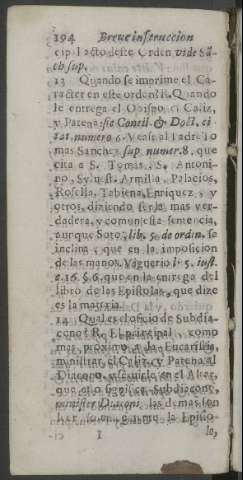 194 Breve instruccion
cip. l acto deste Orden vide Sã-
ch sup.
13 Quando se imprime el Ca-
racter en este orden? R. Quando
le entrega el Obispo el Caliz,
y Patena: sic Concil. & Doct. ci
tat. numero 6. Vease al Padre To
mas Sanchez sup. numer. 8. que
cita a S. Tomas, S. Antoni-
no, Syluest. Armilla, Palacios,
Rosella, Tabiena, Enriquez, y
otros, diziendo ser la mas ver-
dadera, y comun esta sentencia,
aunque Soto, lib. 5. de ordin. se
inclina, que en la imposicion
de las manos. Vaguerio li. 5. iust.
c. 16. §. 6. que en la entrega del
libro de las Epistolas, que dize
es la materia.
14 Qual es el oficio de Subdia-
cono? R. El principal, como
mas proximo a la Eucaristia,
ministrar el Caliz, y Patena al
Diacono, y seruirle en el Altar,
que esto significa Subdiacono,
minister Diaconi, los demas son
leer la Episto-
la,